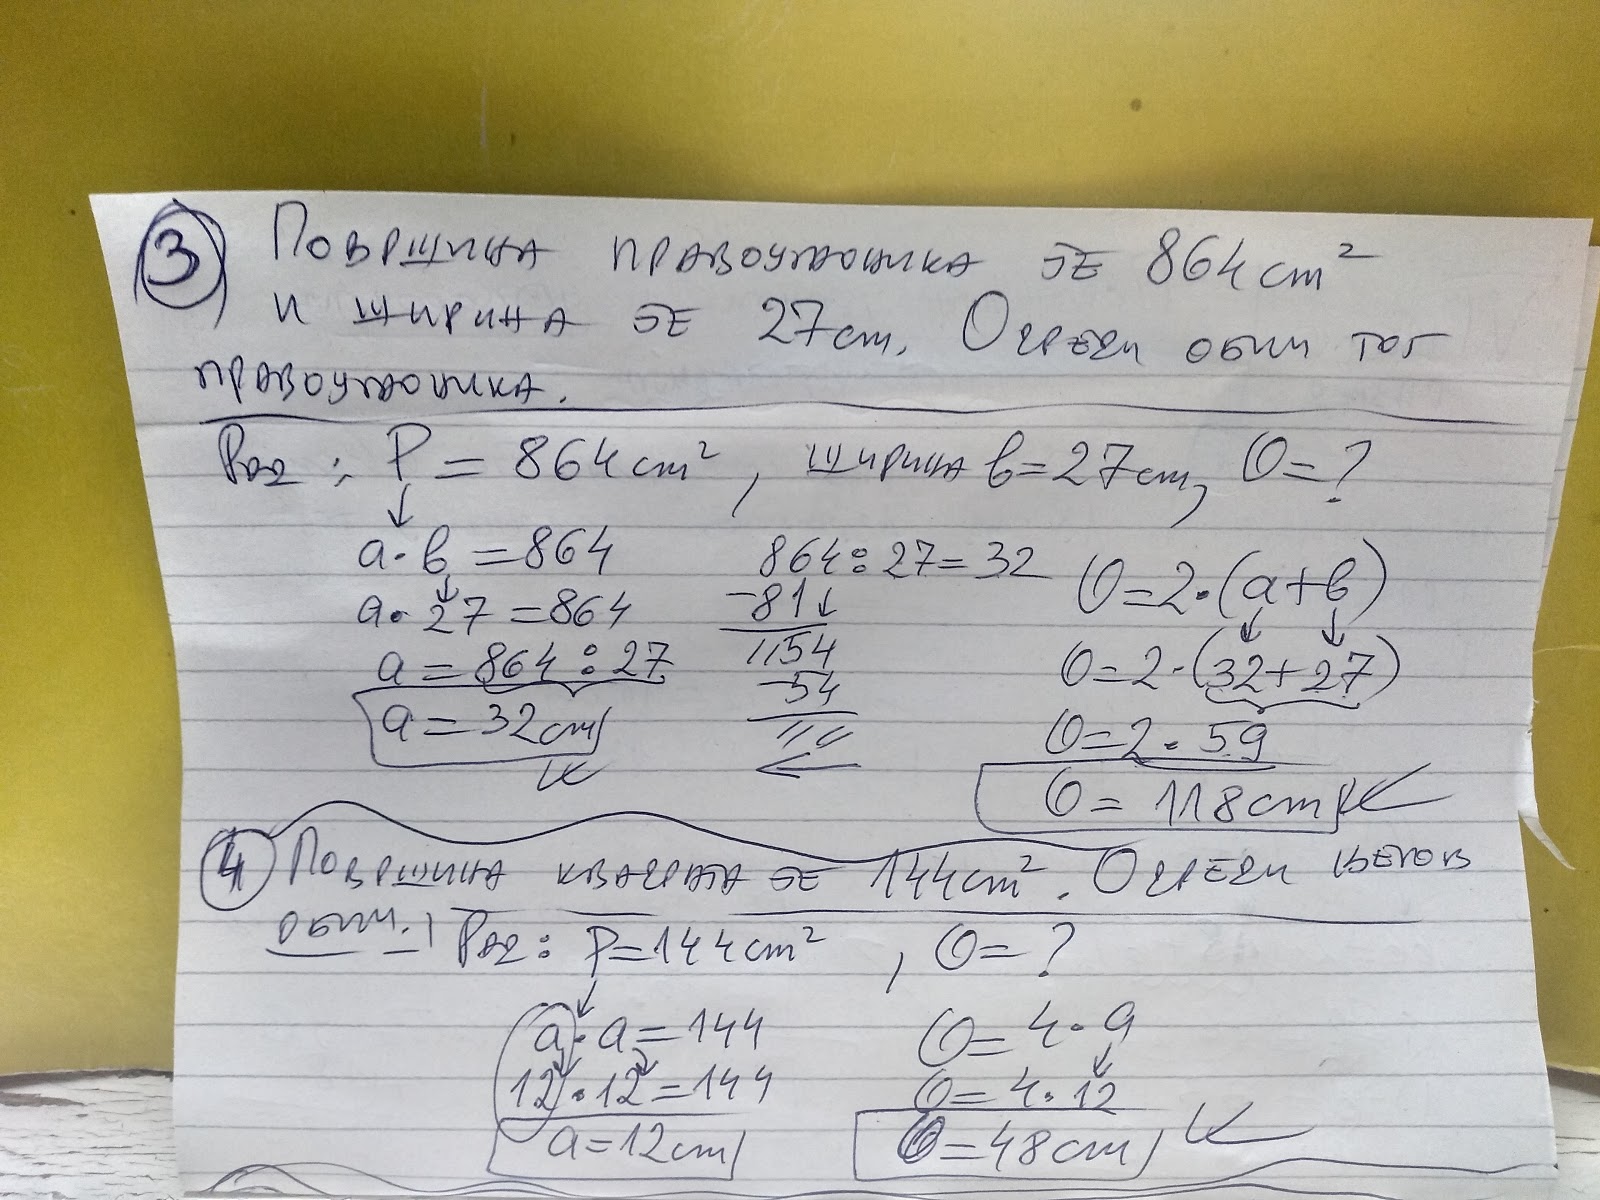 3 Површина правоугаоника је 864cm²
и ширина је 27cm. Одреди обим тог
правоугаоника.
Рад: P = 864cm², ширина b=27cm, O=?
a·b=864
a·27=864
a=864:27
a=32cm
864:27=32
-81
154
-54
O=2·(a+b)
O=2·(32+27)
O=2·59
O=118cm
4 Површина квадрата је 144cm². Одреди његов
обим. Рад: P=144cm², O=?
a·a=144
12·12=144
a=12cm
O=4·a
O=4·12
O=48cm